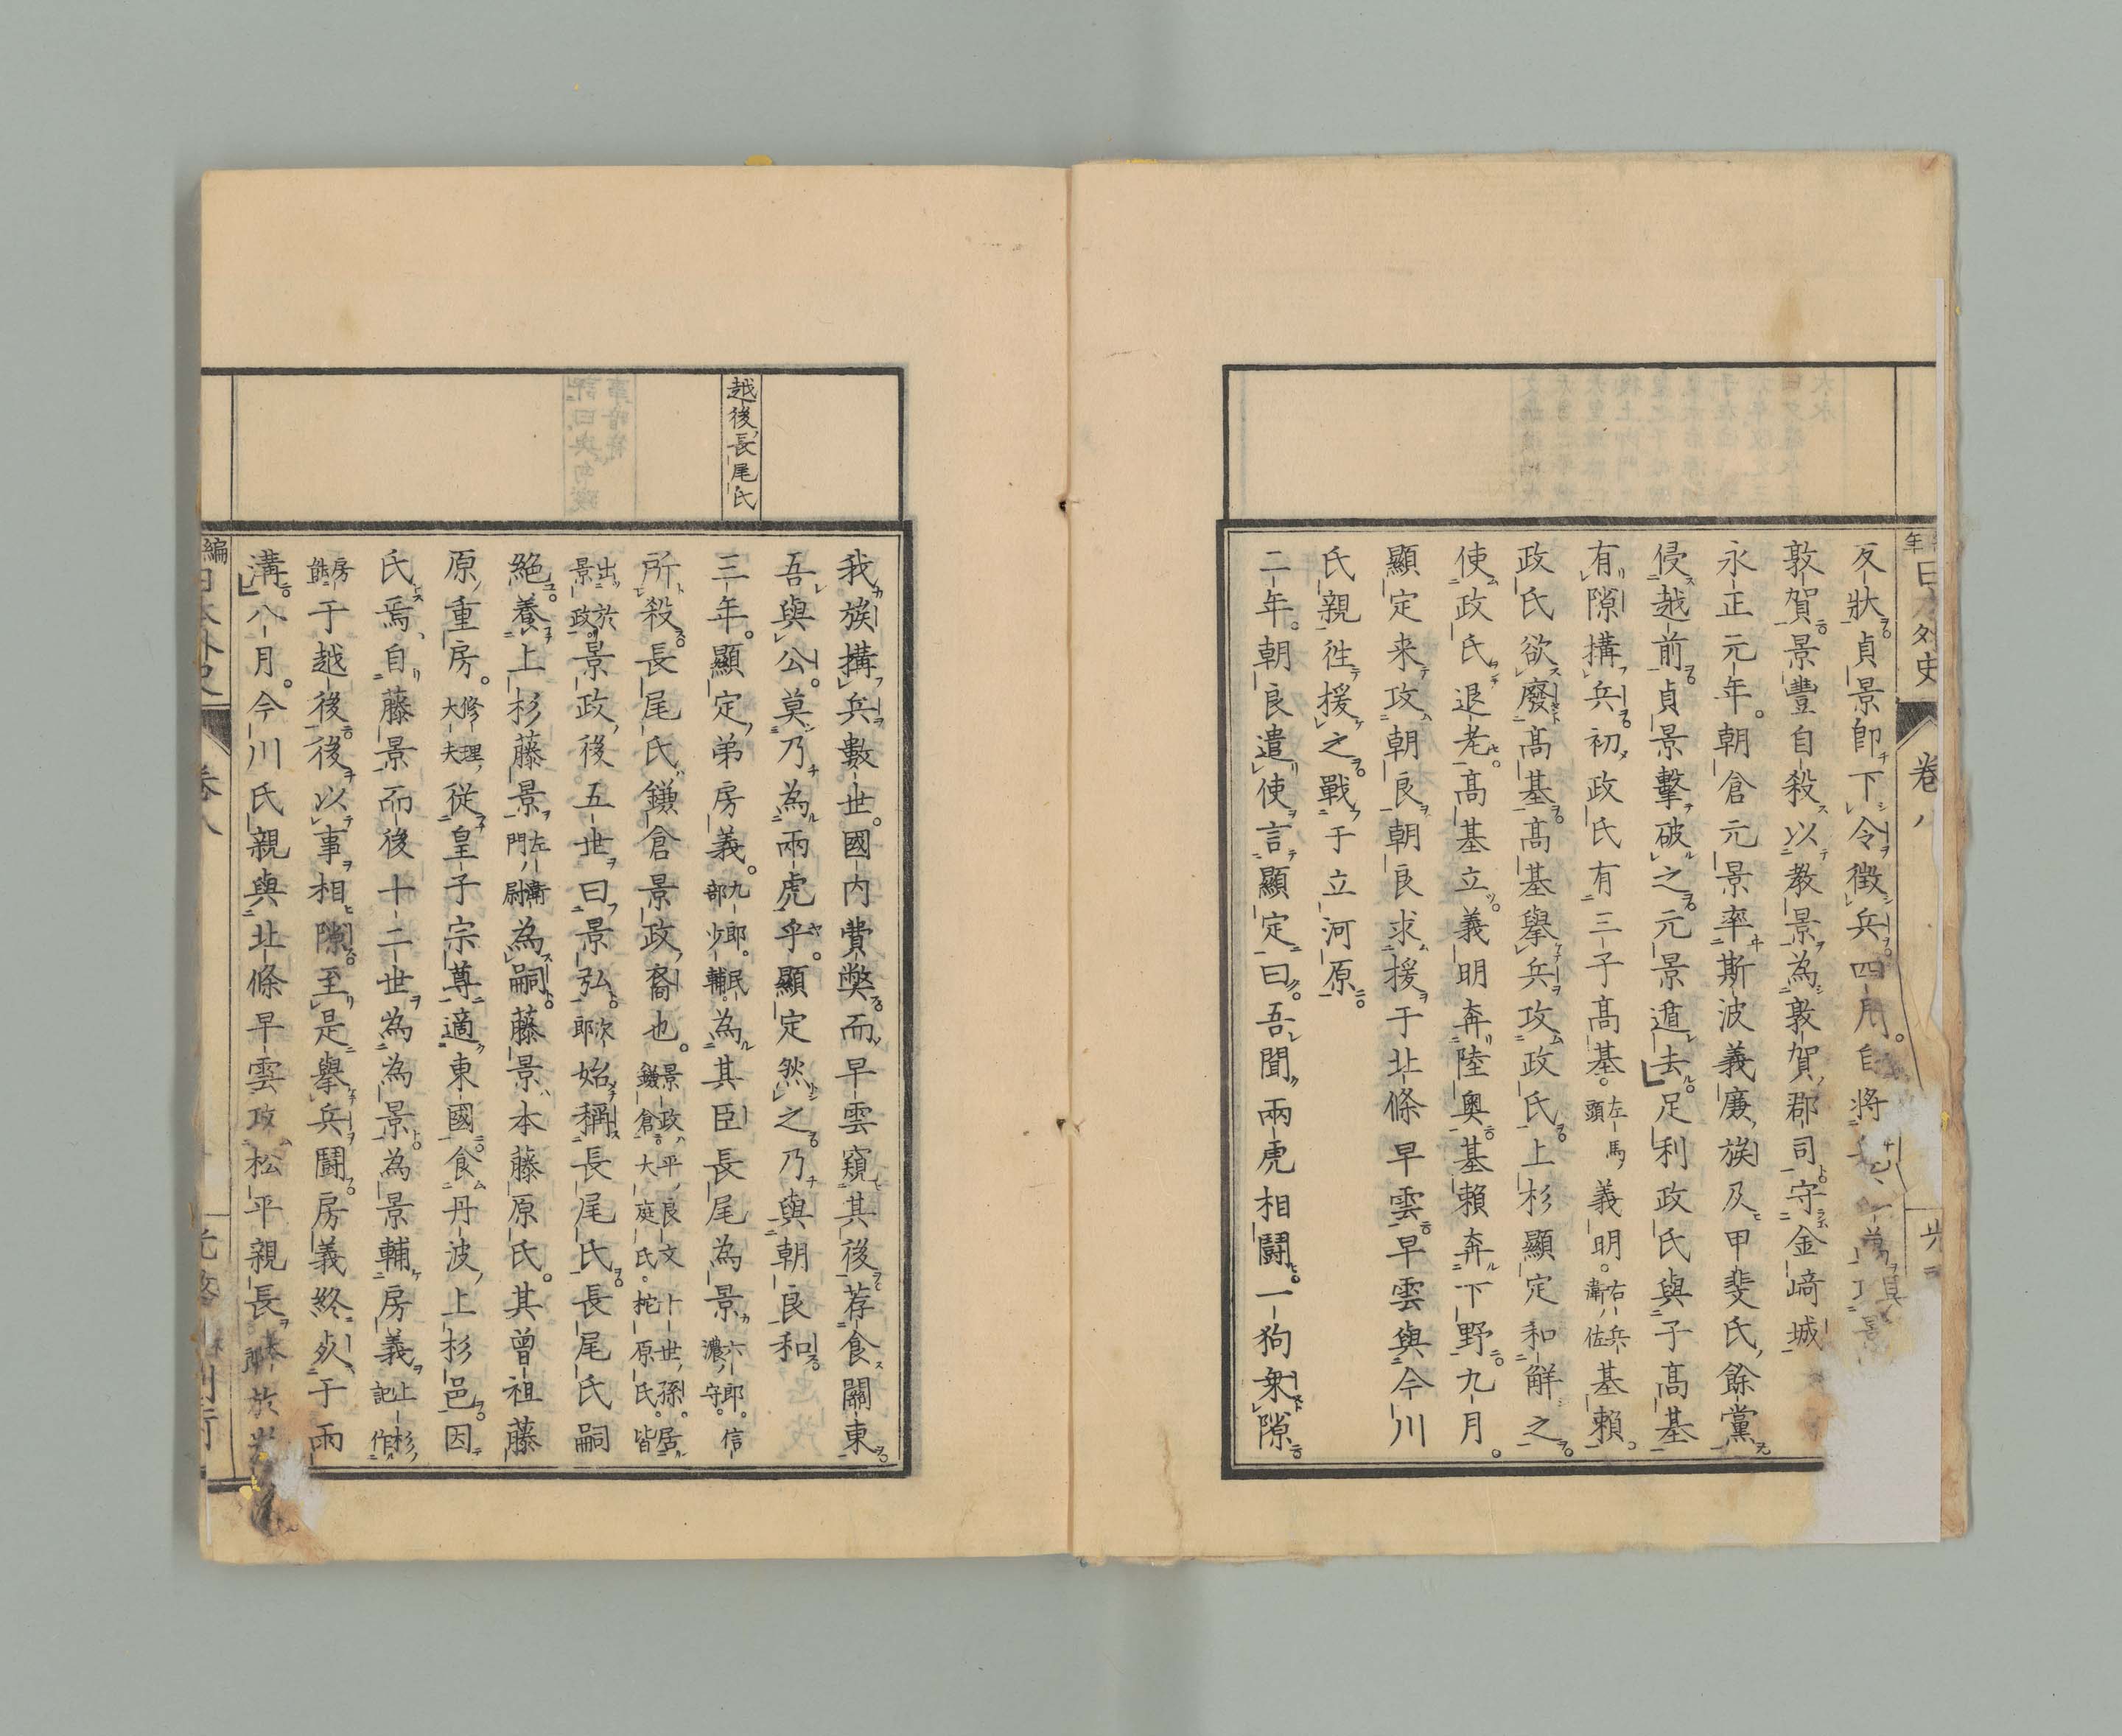 反狀貞景卽下令徵兵四月自將
敦賀景豐自殺以教景為敦賀郡司守金﨑城
永正元年朝倉元景率斯波義廉族及甲斐氏餘黨
侵越前貞景擊破之元景遁去足利政氏與子高基
有隙搆兵初政氏有三子高基左馬頭義明右兵衞佐基賴
政氏欲廢高基高基擧兵攻政氏上杉顯定和解之
使政氏退老高基立義明奔陸奧基賴奔下野九月
顯定来攻朝良朝良求援于北條早雲早雲與今川
氏親徃援之戰于立河原
二年朝良遣使言顯定曰吾聞兩虎相鬪一狗乗隙
我族搆兵數世國內費獘而早雲窺其後荐食關東
吾與公莫乃為兩虎乎顯定然之乃與朝良和
三年顯定弟房義九郎民部少輔為其臣長尾為景六郎信濃守
所殺長尾氏鎌倉景政裔也景政平良文卜世孫居鎌倉大庭氏柁原氏皆
出於景政景政後五世曰景弘次郎始稱長尾氏長尾氏嗣
絕養上杉藤景左衞門尉為嗣藤景本藤原氏其曾祖藤
原重房修理大夫從皇子宗尊適東國食丹波上杉邑因
氏焉自藤景而後十二世為為景為景輔房義上杉記作
房能于越後後以事相隙至是擧兵鬪房義終歿于兩
溝八月今川氏親與北條早雲攻松平親長於
越後長尾氏
卷八